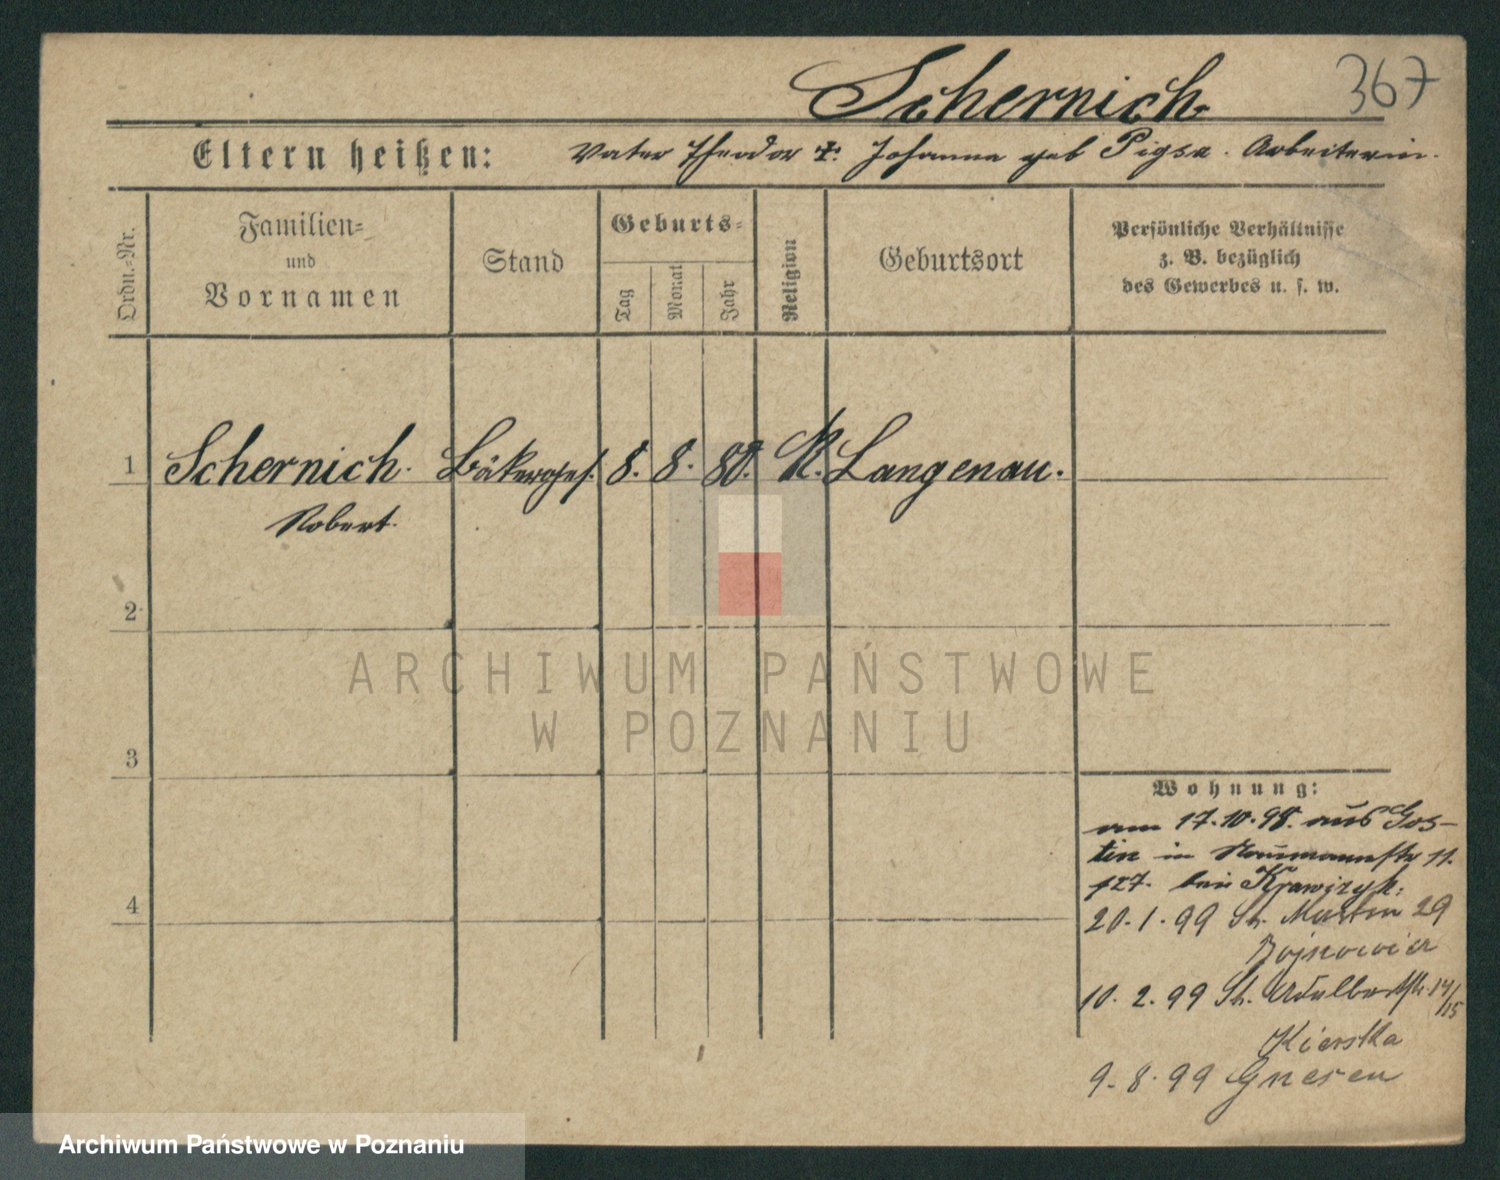 Schernich
367
Eltern heißen: Vater Theodor †. Johanna geb Pigsa. Arbeiterin.
Ordn.-Nr.
Familien- und Vornamen
Stand
Geburts-
Tag
Monat
Jahr
Religion
Geburtsort
Persönliche Verhältnisse
z. B. bezüglich
des Gewerbes u. s. w.
1 Schernich. Bäkerges. 8. 8. 80. K. Langenau.
Robert.
2
ARCHIWUM PAŃSTWOWE
W POZNANIU
3
Wohnung:
am 17.10.98. aus Gos-
tin in Naumannstr 11.
127. bei
4
20.1.99 St. Martin 29
10.2.99 St. Adalbertstr. 14/15
Kierska
9.8.99 Gnesen
Archiwum Państwowe w Poznaniu